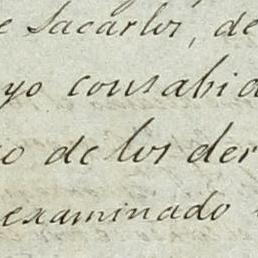 e sacarlos, de
yo consabid
o de los der
examinado